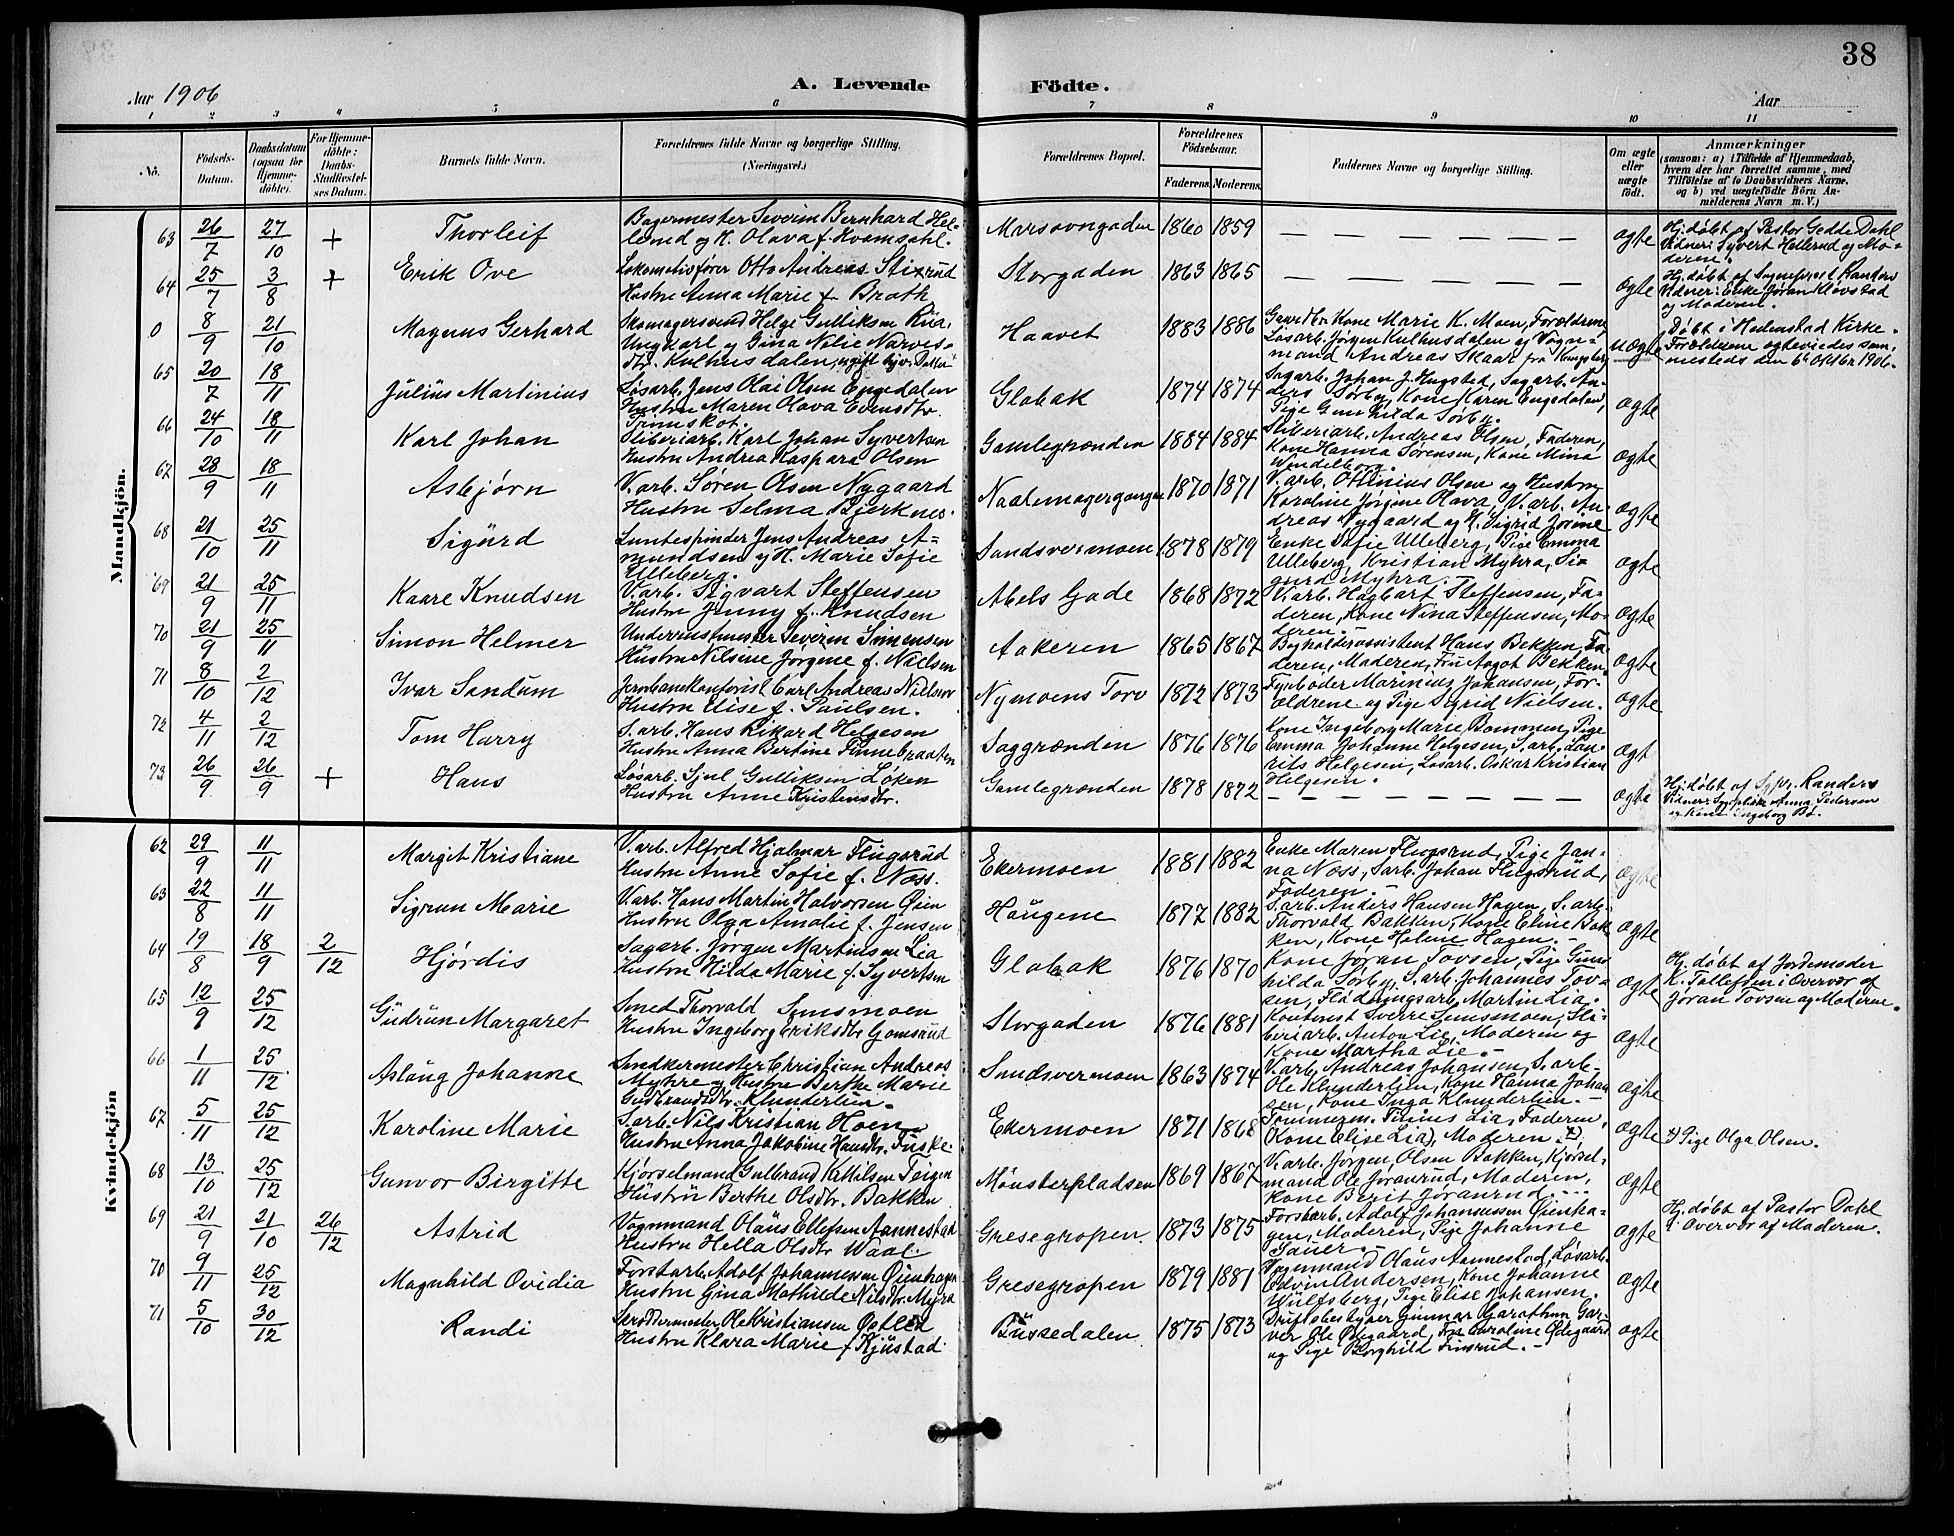 38
Aar 1906
A. Levende
Födte.
Aar
1 2 3 4 5 6 7 8 9 10 11
No.
Födsels-
Datum.
Daabsdatum
(ogsaa for
Hjemme-
döbte).
For Hjemme-
döbte:
Daabs-
Stadfæstel-
ses Datum.
Barnets fulde Navn.
Forældrenes fulde Navne og borgerlige Stilling.
(Næringsvei.)
Forældrenes Bopæl.
Forældrenes
Födselsaar.
Faderens. Moderens.
Faddernes Navne og borgerlige Stilling.
Om ægte
eller
uægte
födt.
Anmærkninger
(saasom: a) i Tilfælde af Hjemmedaab,
hvem der har forrettet samme, med
Tilföielse af to Daabsvidners Navne,
og b) ved uægtefödte Börn An-
melderens Navn m. V.)
Mandkjön.
63 26/7 27/10 + Thorleif
Bagermester Severin Bernhard Hel-
lerud og H. Olava f. Hvamsahl.
1860 1859 — — — — — — ægte
Hj. døbt af Pastor Gedde Dahl
Vidner: Syvert Hellerud og Mo-
deren.
64 25/7 3/8 + Erik Ove
Lokomotivfører Otto Andreas Stixrud
Hustru Anna Marie f. Brath
Storgaden 1863 1865 — — — — — — ægte
Hj. døbt af Sognepræst Randers
Vidner: Enke Jøran Klovstad
og Moderen.
0 8/9 21/10 Magnus Gerhard
Skomagersvend Helge Gulliksen Rua,
Ungkarl og Gina Nilie Narves-
dtr. Kulhusdalen, ugift hjv. Datter
Haavet 1883 1886
Gaardbr. Kone Marie K. Moen, Forældrene
Løsarb. Jørgen Kulhusdalen og Vogn-
mand Andreas Skaar fra Kongsberg
uægte
Døbt i Hedenstad Kirke.
Forældrene ægteviedes sam-
mesteds den 6te Oktbr 1906.
65 20/7 18/11 Julius Martinius
Løsarb. Jens Olai Olsen Engedalen
Hustru Maren Olava Evensdtr.
Finnskot.
Glabak 1874 1874
Sagarb. Johan J. Hugsted, Sagarb. An-
ders Sørby, Kone Karen Engedalen,
Pige Gunhilda Sørby.
ægte
66 24/10 18/11 Karl Johan
Sliberiarb. Karl Johan Syvertsen
Hustru Andrea Kaspara Olsen
Gamlegrænden 1884 1884
Sliberiarb. Andreas Olsen, Faderen,
Kone Hanna Sørensen, Kone Mina
Wendelborg.
ægte
67 28/9 18/11 Asbjørn
V. arb. Søren Olsen Nygaard
Hustru Selma Bjerknes.
Naalemagergangen 1870 1871
V. arb. Ottinius Olsen og Hustru
Karoline Jørgine Olava, V. arb. An-
dreas Nygaard og H. Sigrid Jonine
ægte
68 21/10 25/11 Sigurd
Luntespinder Jens Andreas A-
mundsen og H. Marie Sofie
Ulleberg.
Sandsværmoen 1878 1879
Enke Sofie Ulleberg, Pige Emma
Ulleberg, Kristian Myhra, Si-
gurd Myhra.
ægte
69 21/9 25/11 Kaare Knudsen
V. arb. Sigvart Steffensen
Hustru Jenny f. Knudsen
Abels Gade 1868 1872
V. arb. Hagbart Steffensen, Fa-
deren, Kone Nina Steffensen, Mo-
deren.
ægte
70 21/9 25/11 Simon Helmer
Underrustmester Severin Simensen
Hustru Nilsine Jørgene f. Nielsen
Aakeren 1865 1867
Bogholderassistent Hans Bekken, Fa-
deren, Moderen, Fru Aagot Bekken.
ægte
71 8/10 2/12 Ivar Sandum
Jernbanekontorist Carl Andreas Nielsen
Hustru Elise f. Paulsen.
Nymoens Torv 1872 1873
Fyrbøder Marinius Johansen, For-
ældrene og Pige Sigrid Nielsen.
ægte
72 4/11 2/12 Tom Harry
S. arb. Hans Rikard Helgesen
Hustru Anna Bertine Finnebraaten
Saggrænden 1876 1876
Kone Ingeborg Marie Bommen, Pige
Emma Johanne Helgesen, S. arb. Lau-
rits Helgesen, Løsarb. Oskar Kristian
Helgesen.
ægt
73 26/9 26/9 + Hans
Løsarb. Sjul Gulliksen Løken
Hustru Anne Kristensdtr.
Gamlegrænden 1878 1872 — — — — — — ægte
Hj. døbt af Spr. Randers
Vidner: Sygepleierske Anna Pedersen
og Kone Ingeborg Bø.
Kvindekjön
62 29/9 11/11 Margit Kristiane
V. arb. Alfred Hjalmar Flugsrud
Hustru Anne Sofie f. Næss.
Ekermoen 1881 1882
Enke Maren Flugsrud, Pige Jan-
na Næss, S. arb. Johan Flugsrud,
Faderen.
ægte
63 22/8 11/11 Sigrun Marie
V. arb. Hans Martin Halvorsen Øien
Hustru Olga Amalie f. Jensen
Haugene 1877 1882
S. arb. Anders Hansen Hagen, S. arb.
Thorvald Bakken, Kone Eline Bak-
ken, Kone Helene Hagen.
ægte
64 19/8 18/9 2/12 Hjørdis
Sagarb. Jørgen Martinsen Lia
Hustru Hilda Marie f. Syvertsen
Glabak 1876 1870
Kone Jøran Tovsen, Pige Gun-
hilda Sørby, S. arb. Johannes Tov-
sen, Flødningsarb. Martin Lia.
ægte
Hj. døbt af Jordemoder
K. Tollefsen i Overvær af
Jøran Tovsen og Moderen.
65 12/9 25/12 Gudrun Margaret
Smed Thorvald Sunsmoen
Hustru Ingeborg Eriksdtr. Gomsrud
Storgaden 1876 1881
Kontorist Sverre Sunsmoen, Sli-
beriarb. Anton Lie, Moderen og
Kone Martha Lie.
ægte
66 1/11 25/12 Aslaug Johanne
Snedkermester Christian Andreas
Myhre og Hustru Berthe Marie
Gudbrandsdtr. Klunderlien.
Sandsværmoen 1863 1874
V. arb. Andreas Johansen, S. arb.
Ole Klunderlien, Kone Hanna Johan-
sen, Kone Inga Klunderlien.
ægte
67 5/11 25/12 Karoline Marie
S. arb. Nils Kristian Hoen
Hustru Anna Jakobine Hansdtr. Fuske
Ekermoen 1871 1868
Tømmerm. Tinius Lia, Faderen,
(Kone Elise Lia), Moderen. x)
ægte
x) Pige Olga Olsen.
68 13/10 25/12 Gunvor Birgitte
Kjørselmand Gulbrand K. Nilsen Teigen
Hustru Berthe Olsdtr. Bakken
Mønsterpladsen 1869 1867
V. arb. Jørgen Olsen Bakken, Kjørsel-
mand Ole Jøranrud, Moderen,
Kone Berit Jøranrud.
ægte
69 21/9 21/10 26/12 Astrid
Vognmand Olaus Ellefsen Aannestad
Hustru Hella Olsdtr. Waal.
Gresegropen. 1873 1875
Forstarb. Adolf Johannessen Øienha-
gen, Moderen, Pige Johanne
Saner.
ægte
Hj. døbt af Pastor Dahl
i Overvær af Moderen.
70 9/11 25/12 Magnhild Ovidia
Forstarb. Adolf Johannessen Øienhagen
Hustru Gina Mathilde Nilsdtr. Myra
Gresegropen 1879 1881
Vognmand Olaus Aannestad, Løsarb.
Edvin Andersen, Kone Johanne
Wulfsberg, Pige Elise Johansen.
ægte
71 5/10 30/12 Randi
Skræddermester Ole Kristiansen Østlid
Hustru Klara Marie f. Kjustad.
Bussedalen 1875 1873
Driftsbestyrer Gunnar Garathun Gar-
ver Ole Ødegaard, Fru Caroline Ødegaard
og Pige Borghild Finsrud.
ægte